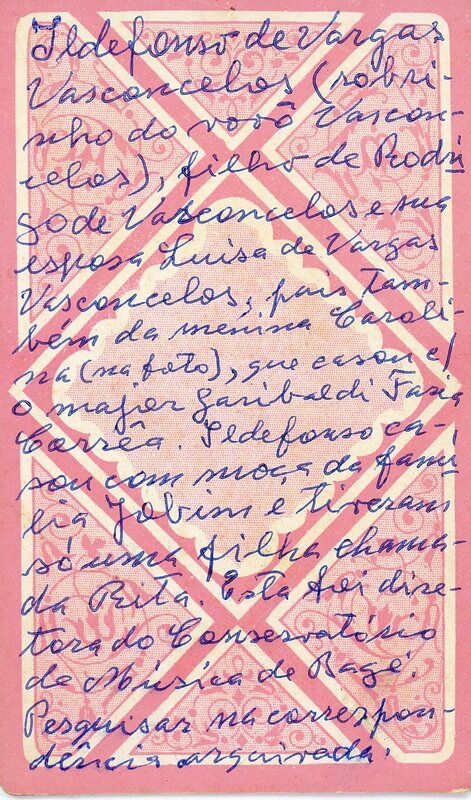 Ildefonso de Vargas
Vasconcelos (sobri-
nho do vovô Vascon-
celos), filho de Rodri
go de Vasconcelos e sua
esposa Luisa de Vargas
Vasconcelos, pais tam-
bém da menina Caroli-
na (na foto), que casou c/
o major Garibaldi Faria
Corrêa. Ildefonso ca-
sou com moça da famí
lia Jobim e tiveram
só uma filha chama-
da Rita. Esta foi dire-
tora do Conservatório
de Música de Bagé.
Pesquisar na correspon-
dência arquivada.